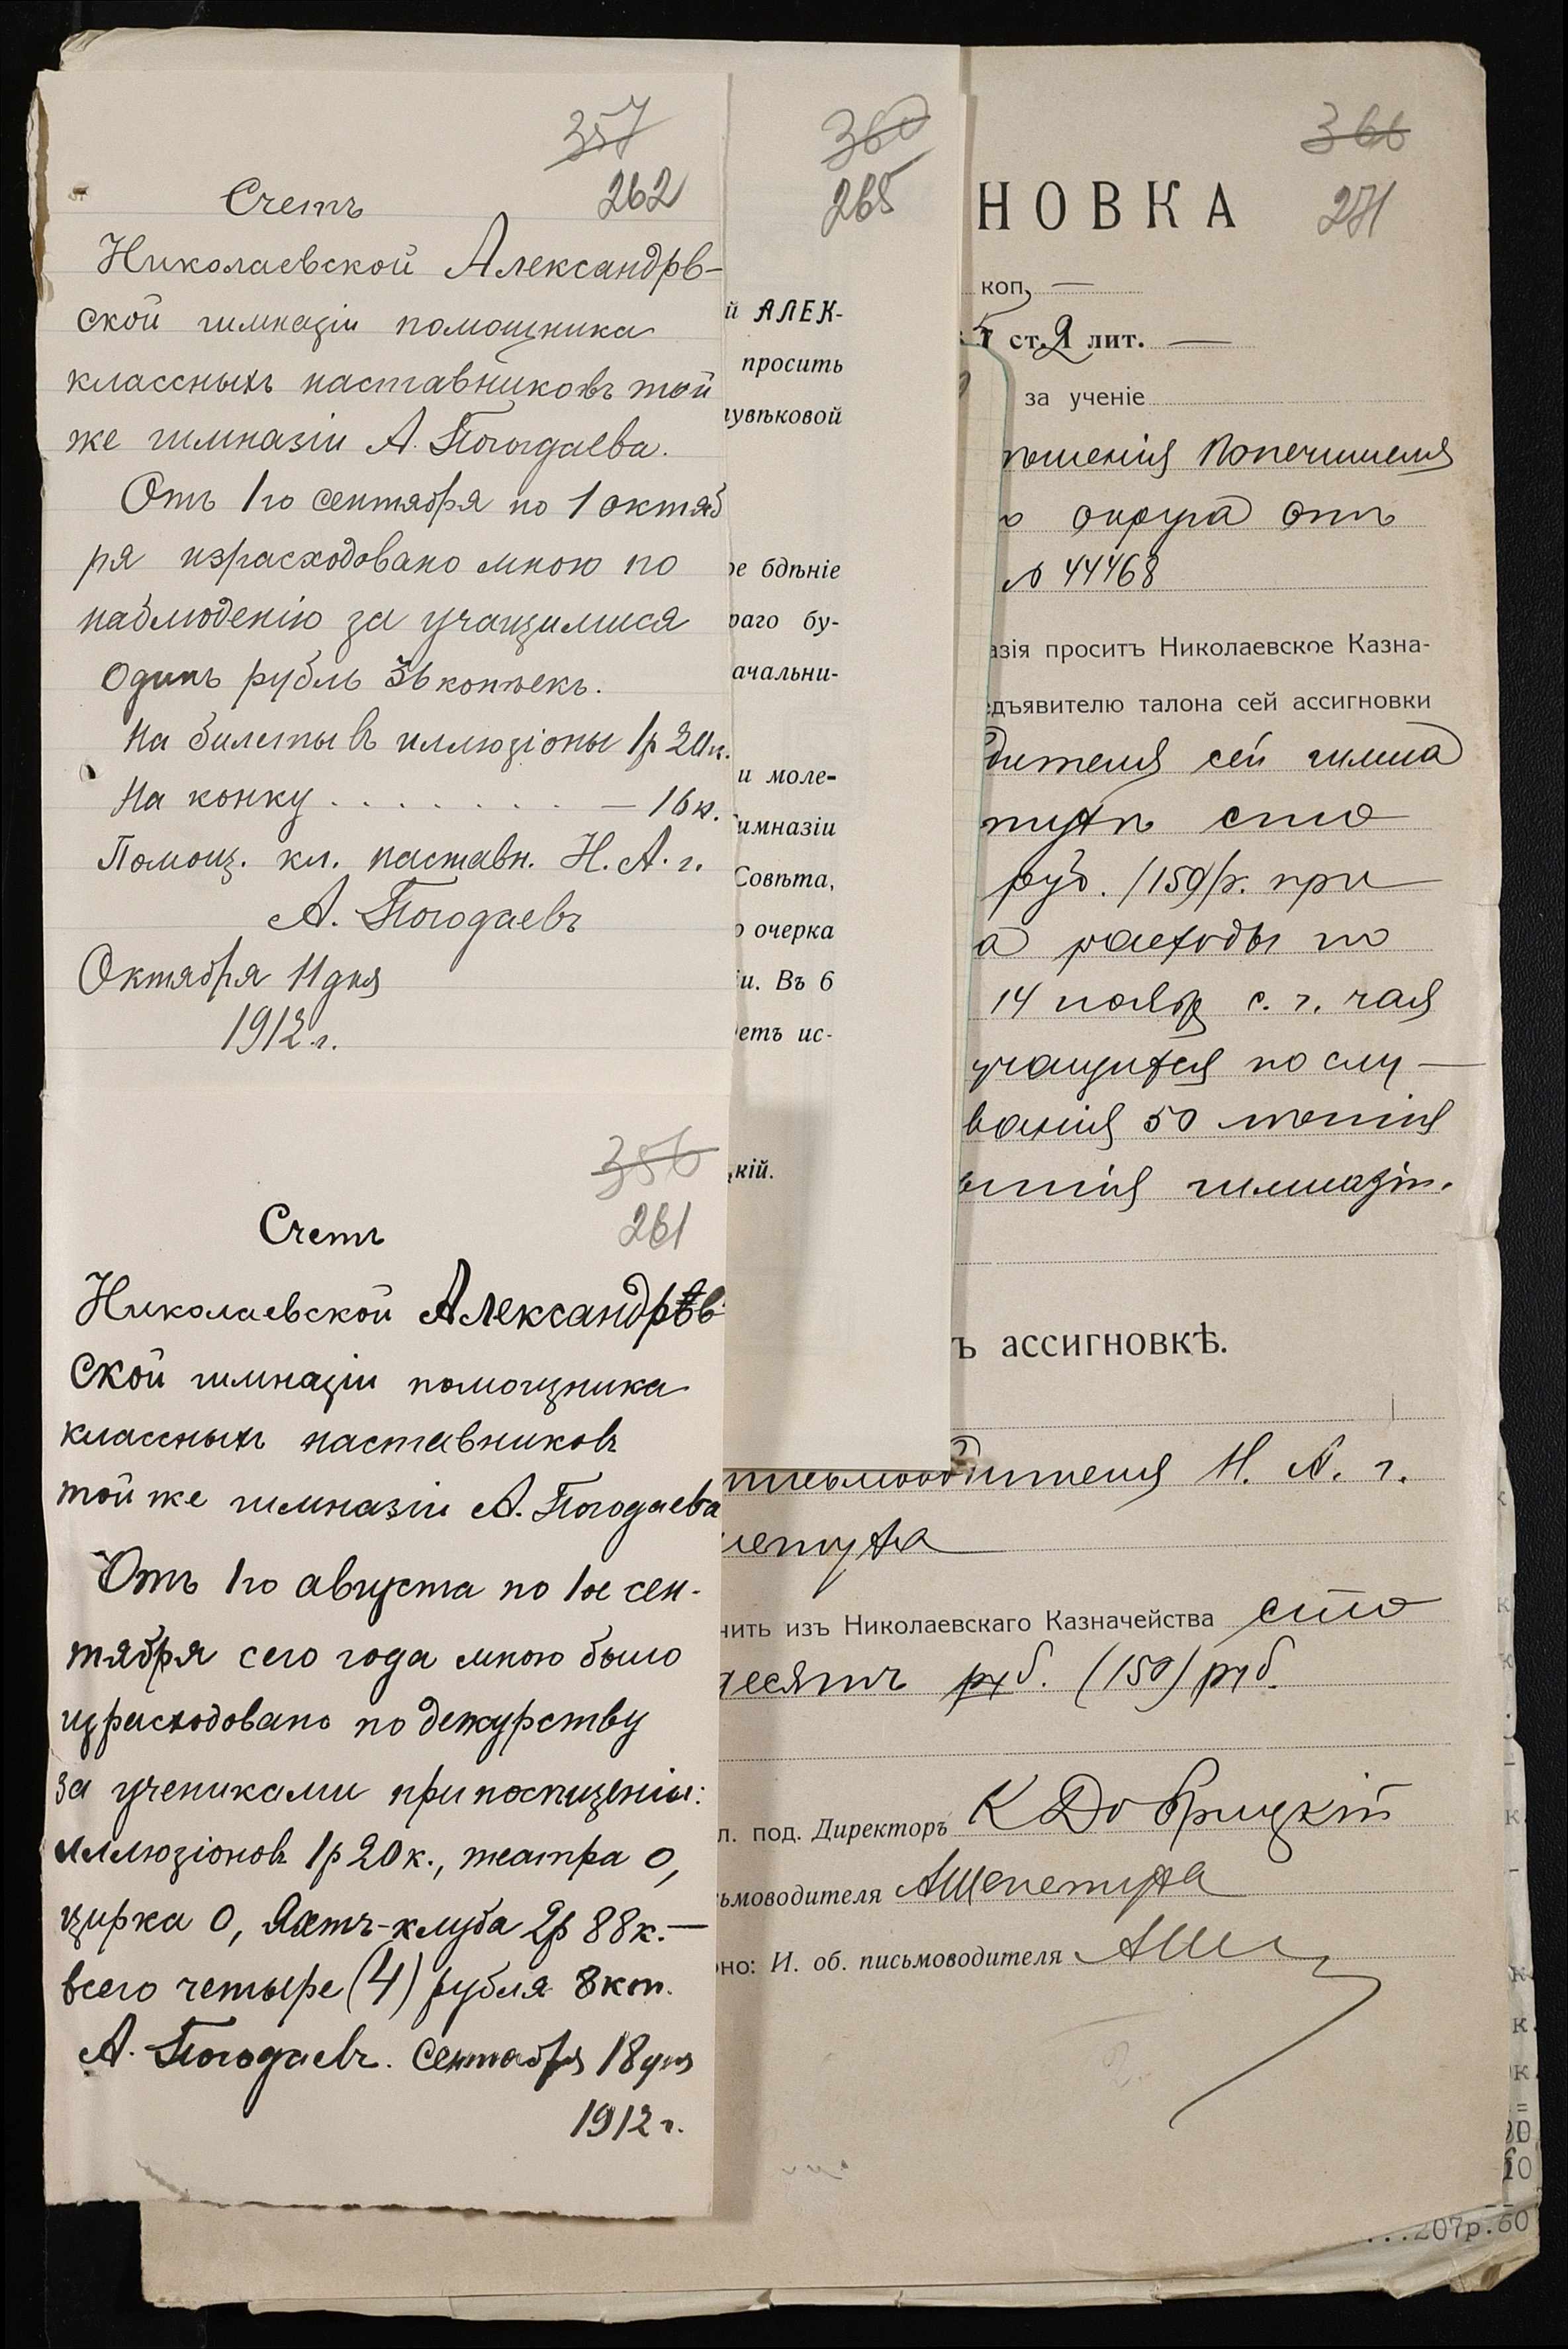 357
262
Счетъ
Николаевской Александрв-
ской гимназіи помощника
классныхъ наставниковъ той
же гимназіи А. Погодаева.
Отъ 1го сентября по 1 октяб
ря израсходовано мною по
наблюденію за учащимися
Одинъ рубль 36 копѣекъ.
На билеты въ иллюзіоны 1р 20к.
На конку . . . . . . . . — 16к.
Помощ. кл. наставн. Н. А. г.
А. Погодаевъ
Октября 11 дня
1912 г.
356
261
Счетъ
Николаевской Александров-
ской гимназіи помощника
классныхъ наставниковъ
той же гимназіи А. Погодаева
Отъ 1го августа по 1ое сен-
тября сего года мною было
израсходовано по дежурству
за учениками при посѣщеніи:
иллюзіоновъ 1р 20к., театра 0,
цирка 0, Яхтъ-клуба 2р 88к.—
всего четыре (4) рубля 8коп.
А. Погодаевъ. Сентября 18 дня
1912 г.
360
265
й АЛЕК-
просить
увѣковой
ое бдѣніе
раго бу-
ачальни-
и моле-
имназіи
Совѣта,
о очерка
іи. Въ 6
етъ ис-
кій.
366
271
НОВКА
коп. —
ст. 2 лит. —
за ученіе
ошенія Попечителя
о округа отъ
№ 44468
азія проситъ Николаевское Казна-
едъявителю талона сей ассигновки
дителя сей гимна
петухъ сто
руб. /150/р. при
а расходы по
14 ноябр с. г. чая
учащихся по слу—
ванія 50 лѣтія
гимназіи.
ъ ассигновкѣ.
письмоводителя Н. А. г.
епетуха
чить изъ Николаевскаго Казначейства сто
десятъ руб. (150) руб.
л. под. Директоръ К Добрицкій
ьмоводителя АШепетуха
оно: И. об. письмоводителя АШ
к.
к.
=
00
10
...207р.60